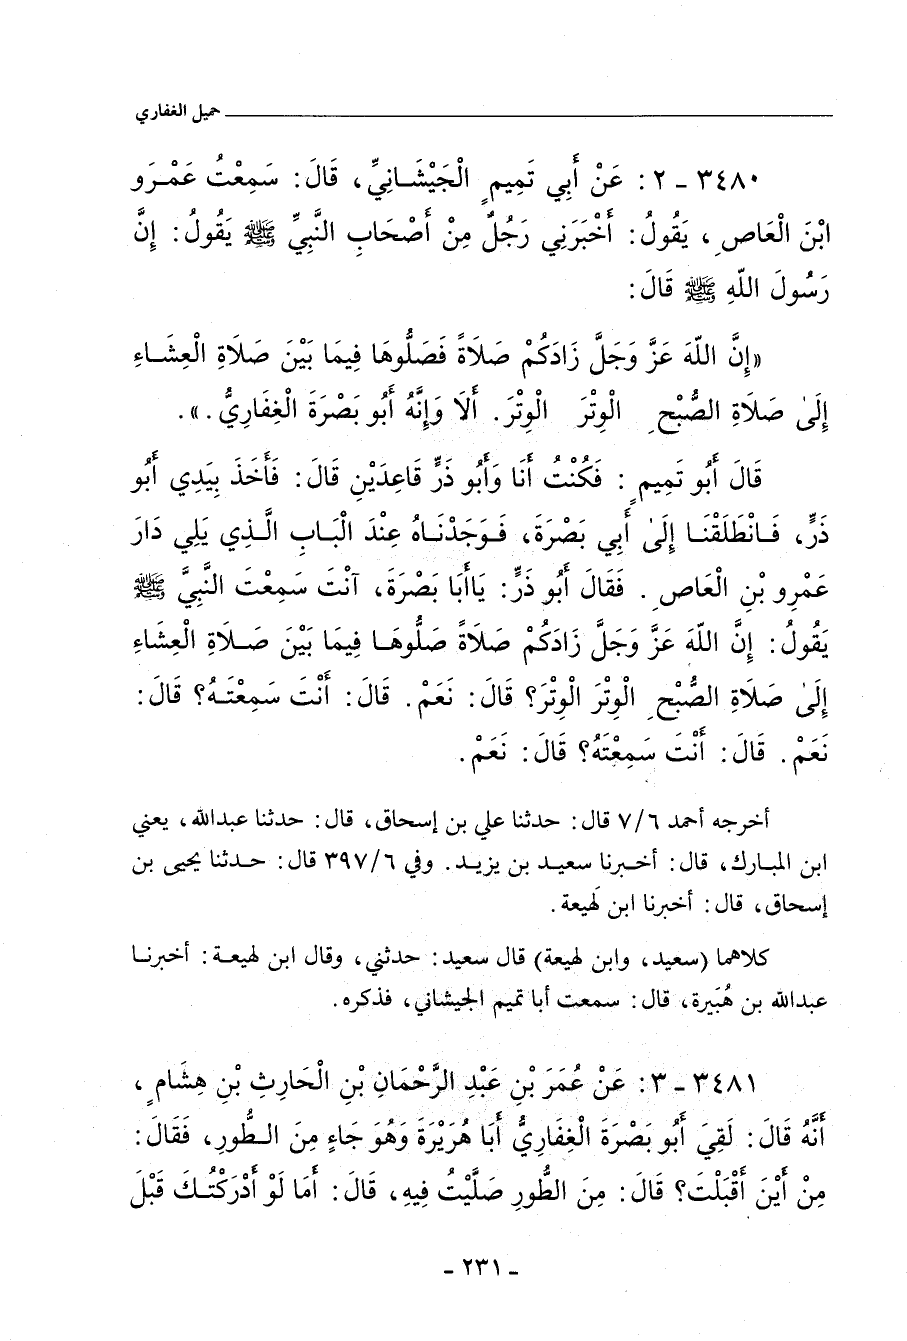 حميل الغفاري
٣٤٨٠ - ٢: عَنْ أَبِي تَمِيمٍ الْجَيْشَانِيِّ، قَالَ: سَمِعْتُ عَمْرَو
ابْنَ الْعَاصِ، يَقُولُ: أَخْبَرَنِي رَجُلٌ مِنْ أَصْحَابِ النَّبِيِّ ﷺ يَقُولُ: إِنَّ
رَسُولَ اللهِ ﷺ قَالَ:
«إِنَّ اللهَ عَزَّ وَجَلَّ زَادَكُمْ صَلَاةً فَصَلُّوهَا فِيمَا بَيْنَ صَلَاةِ الْعِشَاءِ
إِلَىٰ صَلَاةِ الصُّبْحِ الْوِتْرَ الْوِتْرَ. أَلَا وَإِنَّهُ أَبُو بَصْرَةَ الْغِفَارِيُّ.».
قَالَ أَبُو تَمِيمٍ: فَكُنْتُ أَنَا وَأَبُو ذَرٍّ قَاعِدَيْنِ قَالَ: فَأَخَذَ بِيَدِي أَبُو
ذَرٍّ، فَانْطَلَقْنَا إِلَىٰ أَبِي بَصْرَةَ، فَوَجَدْنَاهُ عِنْدَ الْبَابِ الَّذِي يَلِي دَارَ
عَمْرِو بْنِ الْعَاصِ. فَقَالَ أَبُو ذَرٍّ: يَاأَبَا بَصْرَةَ، آنْتَ سَمِعْتَ النَّبِيَّ ﷺ
يَقُولُ: إِنَّ اللهَ عَزَّ وَجَلَّ زَادَكُمْ صَلَاةً صَلُّوهَا فِيمَا بَيْنَ صَلَاةِ الْعِشَاءِ
إِلَىٰ صَلَاةِ الصُّبْحِ الْوِتْرَ الْوِتْرَ؟ قَالَ: نَعَمْ. قَالَ: أَنْتَ سَمِعْتَهُ؟ قَالَ:
نَعَمْ. قَالَ: أَنْتَ سَمِعْتَهُ؟ قَالَ: نَعَمْ.
أخرجه أحمد ٦/٧ قال: حدثنا علي بن إسحاق، قال: حدثنا عبدالله، يعني
ابن المبارك، قال: أخبرنا سعيد بن يزيد. وفي ٦/٣٩٧ قال: حدثنا يحيى بن
إسحاق، قال: أخبرنا ابن لَهيعة.
كلاهما (سعيد، وابن لهيعة) قال سعيد: حدثني، وقال ابن لهيعة: أخبرنا
عبدالله بن هُبَيرة، قال: سمعت أبا تميم الجيشاني، فذكره.
٣٤٨١ - ٣: عَنْ عُمَرَ بْنِ عَبْدِ الرَّحْمَانِ بْنِ الْحَارِثِ بْنِ هِشَامٍ،
أَنَّهُ قَالَ: لَقِيَ أَبُو بَصْرَةَ الْغِفَارِيُّ أَبَا هُرَيْرَةَ وَهُوَ جَاءٍ مِنَ الطُّورِ، فَقَالَ:
مِنْ أَيْنَ أَقْبَلْتَ؟ قَالَ: مِنَ الطُّورِ صَلَّيْتُ فِيهِ، قَالَ: أَمَا لَوْ أَدْرَكْتُكَ قَبْلَ
- ٢٣١ -